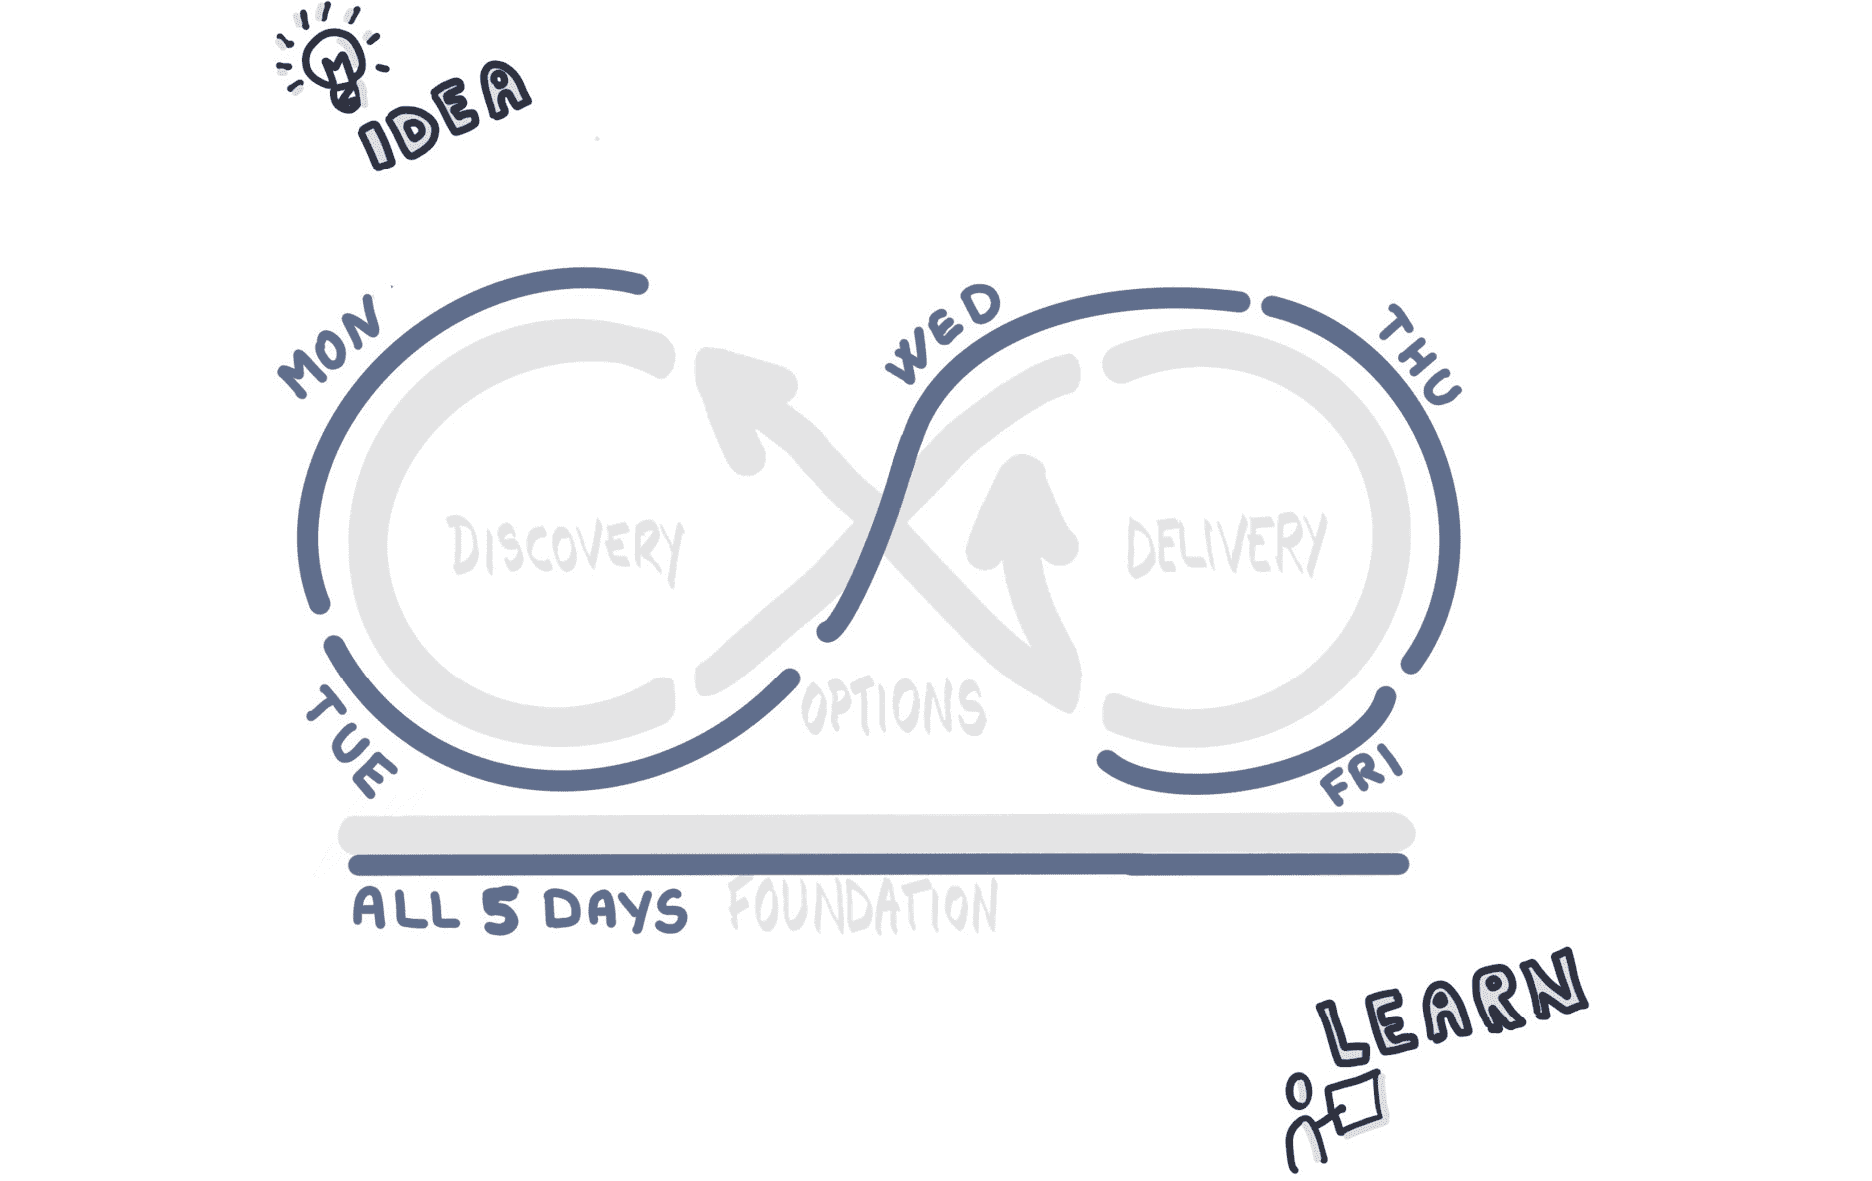 IDEA
MON
WED
THU
DISCOVERY
DELIVERY
OPTIONS
TUE
FRI
ALL 5 DAYS
FOUNDATION
LEARN